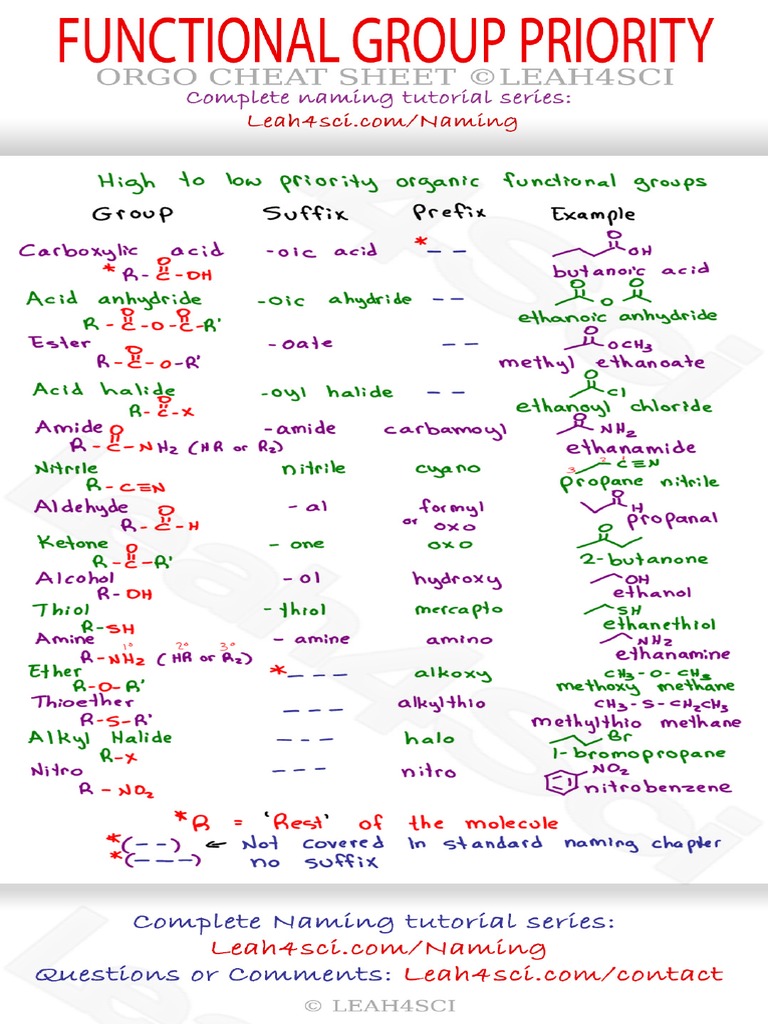 FUNCTIONAL GROUP PRIORITY
ORGO CHEAT SHEET ©LEAH4SCI
Complete naming tutorial series:
Leah4sci.com/Naming
High to low priority organic functional groups
Group Suffix Prefix Example
Carboxylic acid -oic acid *-- OH
* R-C-OH O butanoic acid
Acid anhydride -oic ahydride -- O O O
R-C-O-C-R' O O ethanoic anhydride
Ester -oate -- O OCH3
R-C-O-R' O methyl ethanoate
Acid halide -oyl halide -- O Cl
R-C-X O ethanoyl chloride
Amide -amide carbamoyl O NH2
R-C-NH2 (HR or R2) O ethanamide
Nitrile nitrile cyano 3 2 1 C≡N
R-C≡N propane nitrile
Aldehyde -al formyl O H
R-C-H O or oxo propanal
Ketone -one oxo O
R-C-R' O 2-butanone
Alcohol -ol hydroxy OH
R-OH ethanol
Thiol -thiol mercapto SH
R-SH ethanethiol
Amine -amine amino NH2
R-NH2 (HR or R2) 1° 2° 3° ethanamine
Ether *--- alkoxy CH3-O-CH3
R-O-R' methoxy methane
Thioether --- alkylthio CH3-S-CH2CH3
R-S-R' methylthio methane
Alkyl Halide --- halo Br
R-X 1-bromopropane
Nitro --- nitro NO2
R-NO2 nitrobenzene
*R = 'Rest' of the molecule
*(--) ← Not covered in standard naming chapter
*(---) no suffix
Complete Naming tutorial series:
Leah4sci.com/Naming
Questions or Comments: Leah4sci.com/contact
© LEAH4SCI